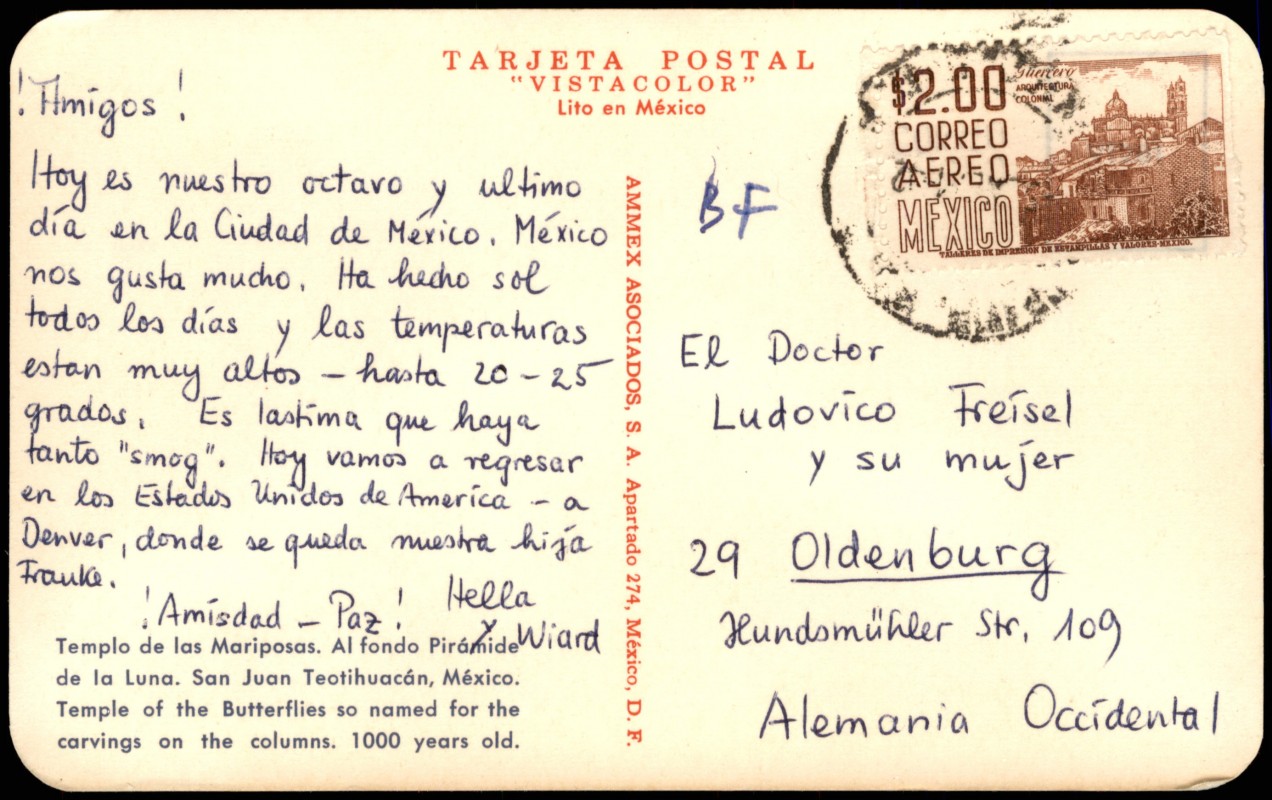 TARJETA POSTAL
"VISTACOLOR"
Lito en México
! Amigos !
Hoy es nuestro octavo y ultimo
día en la Ciudad de México. México
nos gusta mucho. Ha hecho sol
todos los días y las temperaturas
estan muy altos – hasta 20 – 25
grados. Es lastima que haya
tanto "smog". Hoy vamos a regresar
en los Estados Unidos de America – a
Denver, donde se queda nuestra hija
Frauke.
! Amisdad – Paz! Hella
y Wiard
Templo de las Mariposas. Al fondo Pirámide
de la Luna. San Juan Teotihuacán, México.
Temple of the Butterflies so named for the
carvings on the columns. 1000 years old.
AMMEX ASOCIADOS, S. A. Apartado 274, México, D. F.
$2.00
Guerrero
ARQUITECTURA
COLONIAL
CORREO
AEREO
MEXICO
TALLERES DE IMPRESION DE ESTAMPILLAS Y VALORES-MEXICO.
BF
El Doctor
Ludovico Freisel
y su mujer
29 Oldenburg
Hundsmühler Str. 109
Alemania Occidental